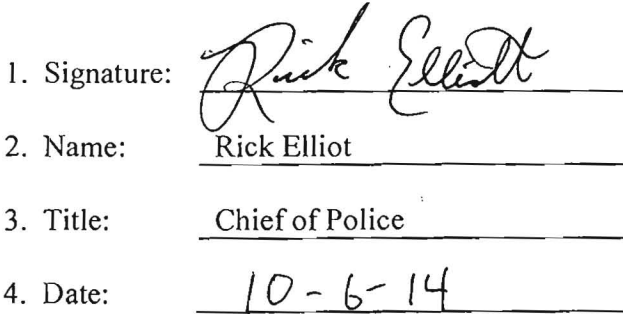 1. Signature: Rick Elliott
2. Name: Rick Elliot
3. Title: Chief of Police
4. Date: 10-6-14